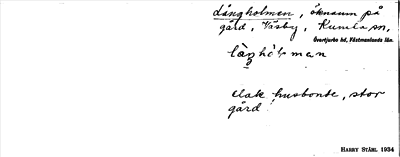 Långholmen, öknamn på
gård, Näsby, Kumla sn,
Övertjurbo hd, Västmanlands län.
elak husbonde, stor
gård
HARRY STÅHL 1934